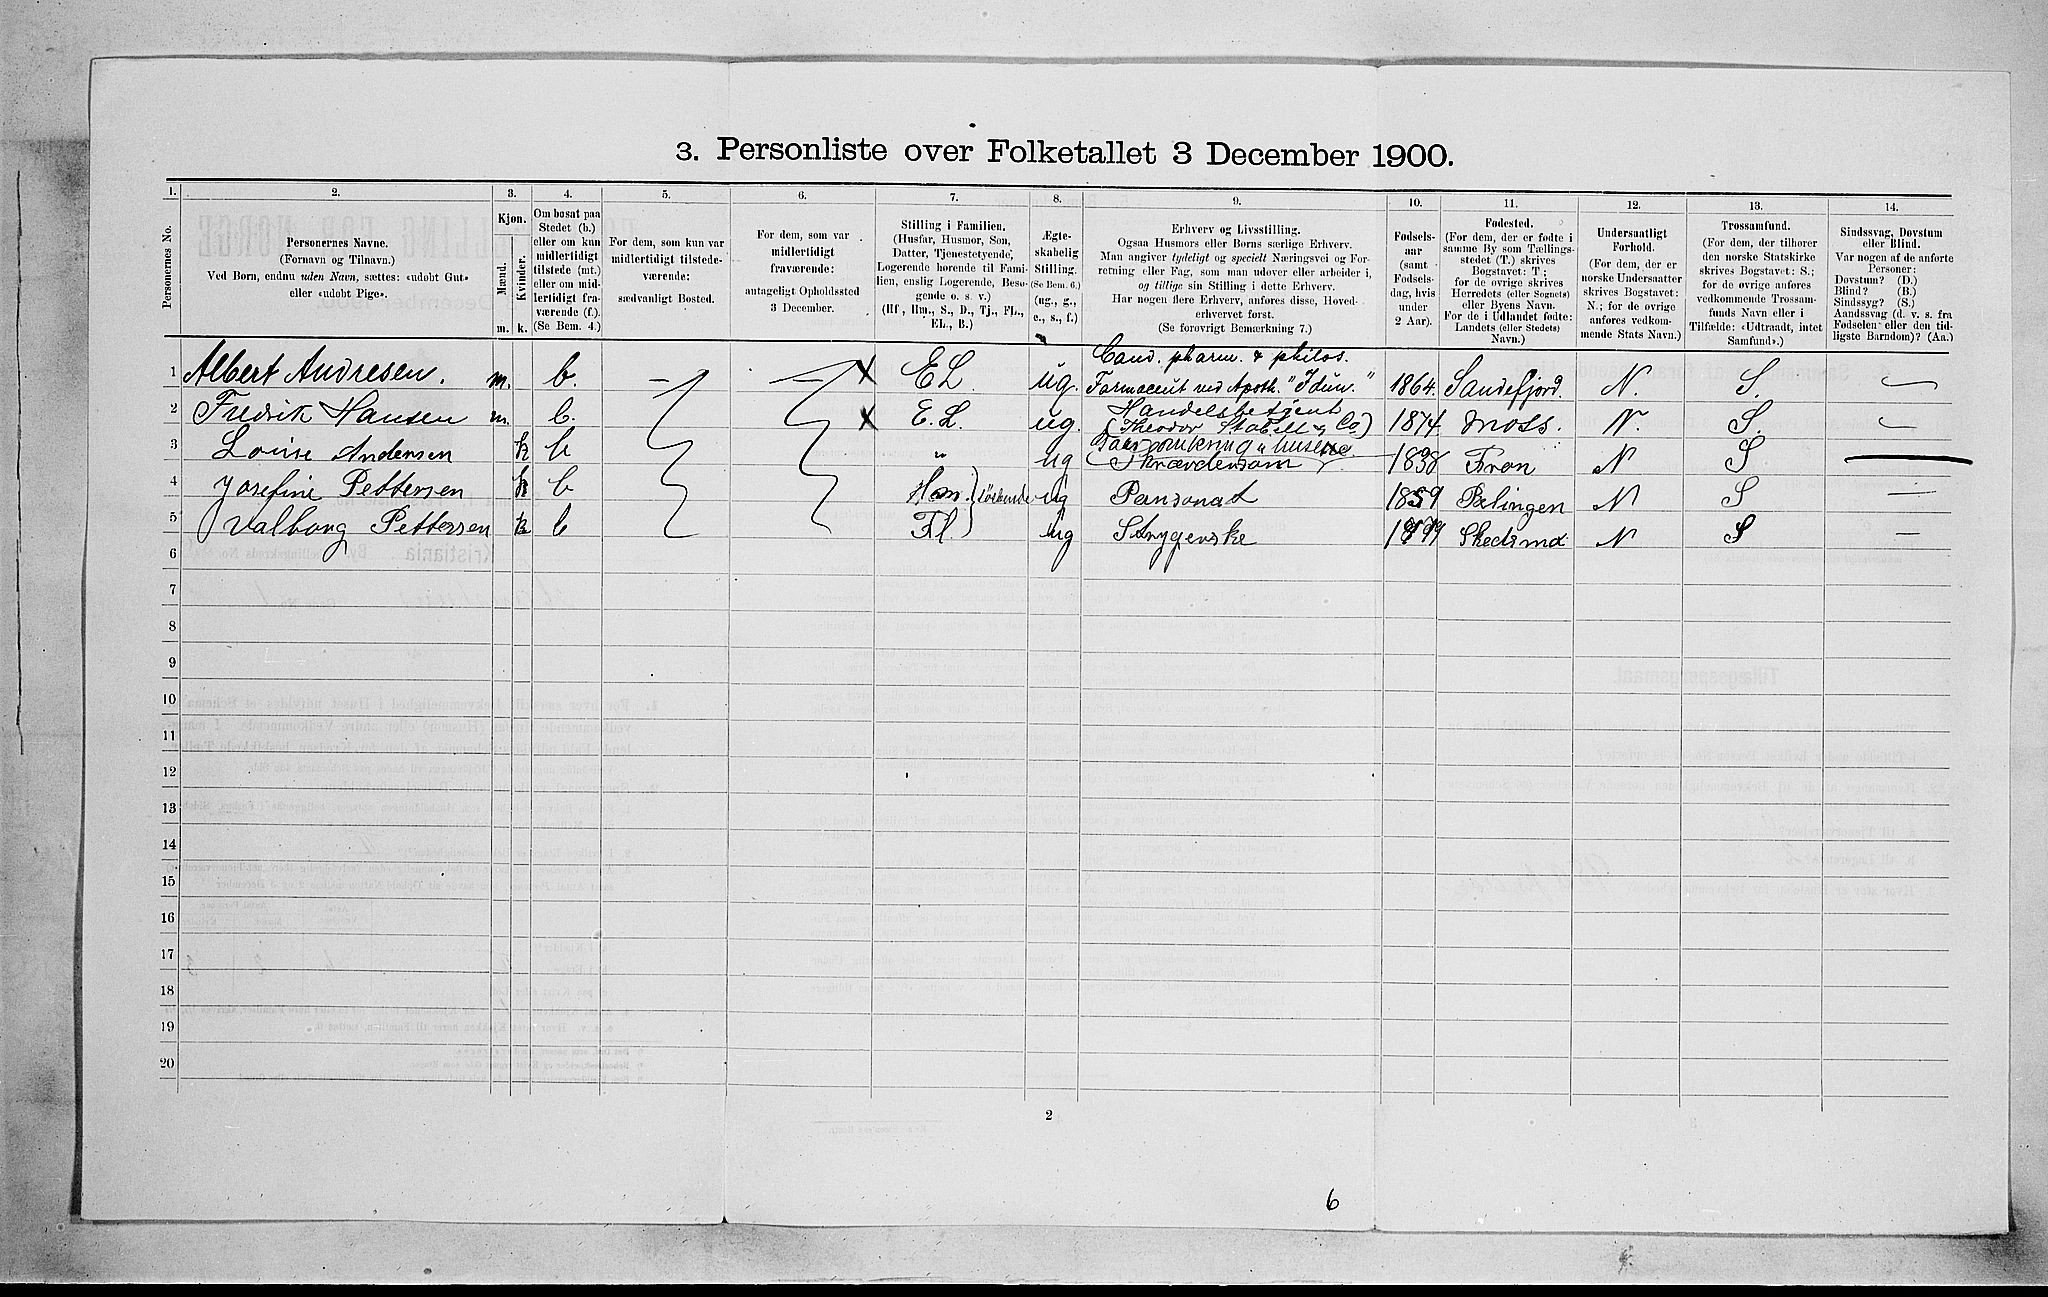 3. Personliste over Folketallet 3 December 1900.
1. 2. 3. 4. 5. 6. 7. 8. 9. 10. 11. 12. 13. 14.
Personernes No.
Personernes Navne.
(Fornavn og Tilnavn.)
Ved Børn, endnu uden Navn, sættes: «udøbt Gut»
eller «udøbt Pige».
Kjøn.
Mænd.
Kvinder.
m. k.
Om bosat paa
Stedet (b.)
eller om kun
midlertidigt
tilstede (mt.)
eller om mid-
lertidigt fra-
værende (f.).
(Se Bem. 4.)
For dem, som kun var
midlertidigt tilstede-
værende:
sædvanligt Bosted.
For dem, som var
midlertidigt
fraværende:
antageligt Opholdssted
3 December.
Stilling i Familien.
(Husfar, Husmor, Søn,
Datter, Tjenestetyende,
Logerende hørende til Fami-
lien, enslig Logerende, Besø-
gende o. s. v.)
(Hf., Hm., S., D., Tj., FL.,
EL., B.)
Ægte-
skabelig
Stilling.
(Se Bem. 6.)
(ug., g.,
e., s., f.)
Erhverv og Livsstilling.
Ogsaa Husmors eller Børns særlige Erhverv.
Man angiver tydeligt og specielt Næringsvei og For-
retning eller Fag, som man udøver eller arbeider i,
og tillige sin Stilling i dette Erhverv.
Har nogen flere Erhverv, anføres disse, Hoved-
erhvervet først.
(Se forøvrigt Bemærkning 7.)
Fødsels-
aar
(samt
Fødsels-
dag, hvis
under
2 Aar).
Fødested.
(For dem, der er fødte i
samme By som Tællings-
stedet (T.) skrives
Bogstavet: T;
for de øvrige skrives
Herredets (eller Sognets)
eller Byens Navn.
For de i Udlandet fødte:
Landets (eller Stedets)
Navn.)
Undersaatligt
Forhold.
(For dem, der er
norske Undersaatter
skrives Bogstavet:
N.; for de øvrige
anføres vedkom-
mende Stats Navn.)
Trossamfund.
(For dem, der tilhører
den norske Statskirke
skrives Bogstavet: S.;
for de øvrige anføres
vedkommende Trossam-
funds Navn eller i
Tilfælde: «Udtraadt, intet
Samfund».)
Sindssvag, Døvstum
eller Blind.
Var nogen af de anførte
Personer:
Døvstum? (D.)
Blind? (B.)
Sindssyg? (S.)
Aandssvag (d. v. s. fra
Fødselen eller den tid-
ligste Barndom)? (Aa.)
Cand. pharm. & philos.
1 Albert Andresen. m. b. — — X EL ug. Farmaceut ved Apoth. "Idun." 1864. Sandefjord. N. S. —
Handelsbetjent
2 Fredrik Hansen m. b. X E.L. ug. (Theodor & Co) 1874 Moss. N. S. —
3 Louise Andersen k b " ug 1838 Fron N S —
4 Josefine Pettersen k b Hm. ug 1859 N S —
5 Valborg Pettersen k b Fl. ug Strygerske Skedsmo N S —
6
7
8
9
10
11
12
13
14
15
16
17
18
19
20
2
6